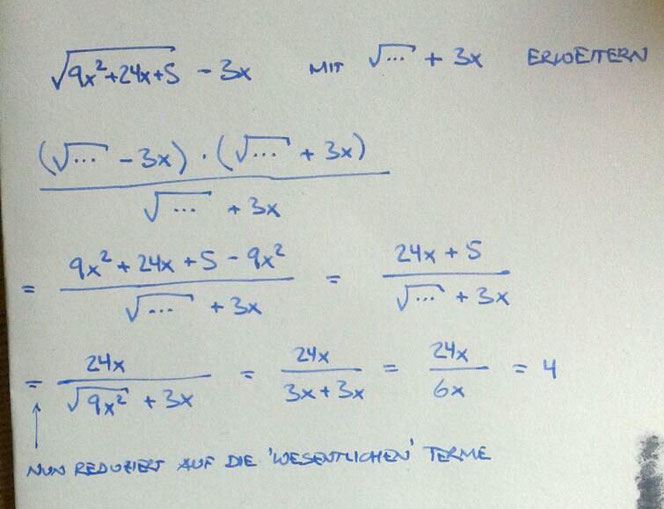 √(9x²+24x+5) - 3x MIT √... + 3x ERWEITERN
((√... - 3x) · (√... + 3x)) / (√... + 3x)
= (9x² + 24x + 5 - 9x²) / (√... + 3x) = (24x + 5) / (√... + 3x)
= 24x / (√(9x²) + 3x) = 24x / (3x + 3x) = 24x / 6x = 4
NUN REDUZIERT AUF DIE 'WESENTLICHEN' TERME